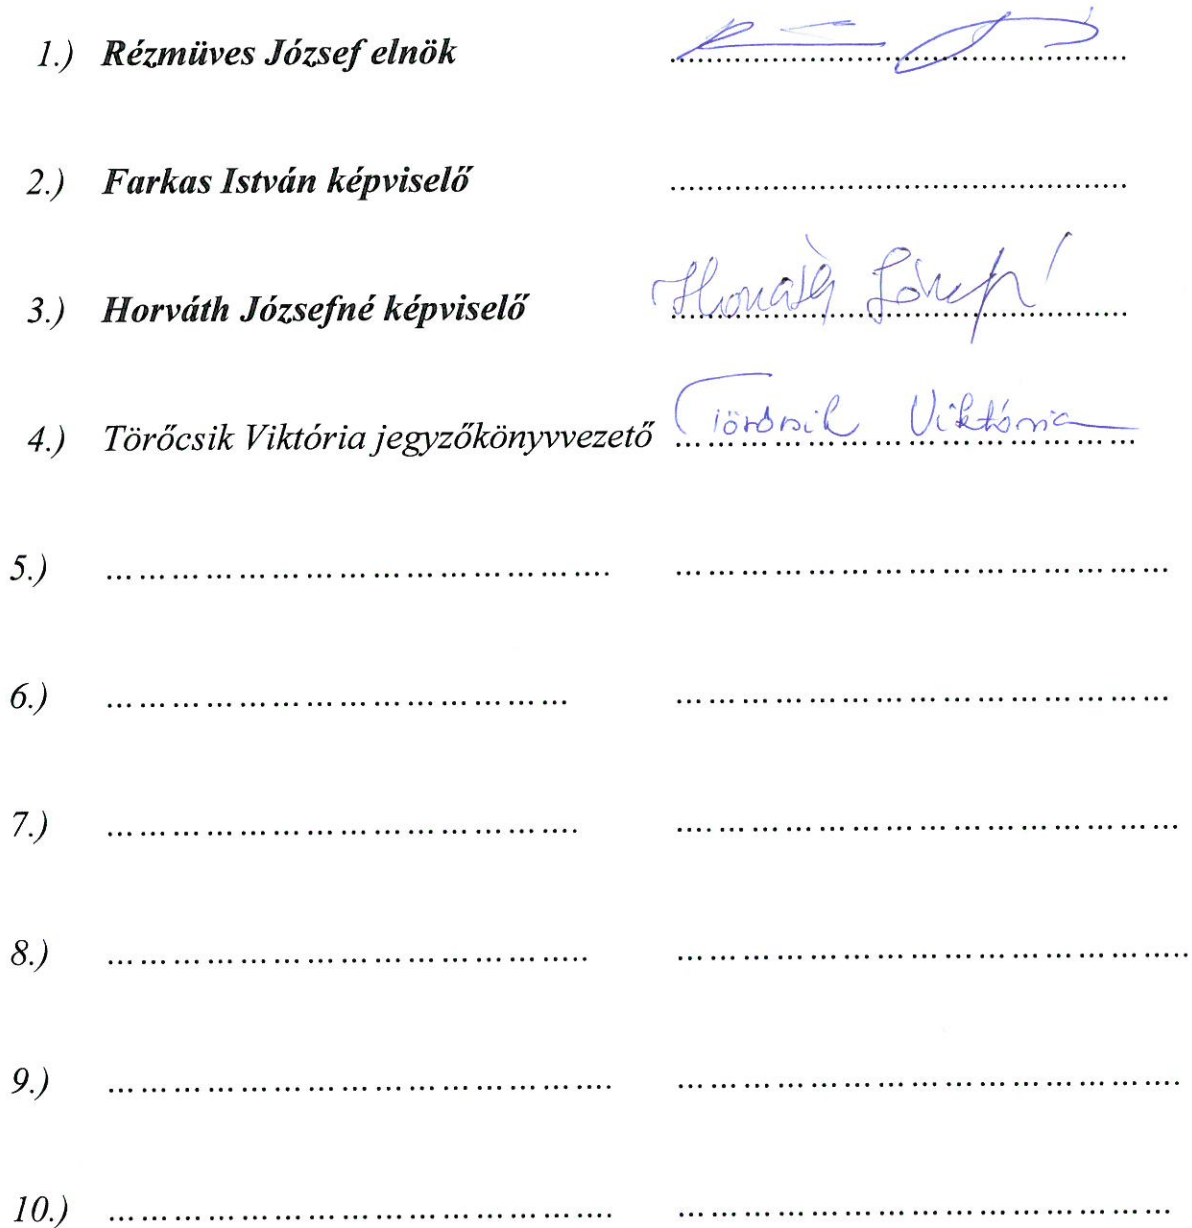 1.) Rézmüves József elnök ..............................................
2.) Farkas István képviselő ..............................................
3.) Horváth Józsefné képviselő Horváth Józsefné
4.) Törőcsik Viktória jegyzőkönyvvezető Törőcsik Viktória
5.) …………………………………………. ………………………………………
6.) ……………………………………… ………………………………………
7.) ………………………………………. ….……………………………………
8.) ……………………………………….. ………………………………………..
9.) …………………………………………. ……………………………………….
10.) …………………………………………. ………………………………………